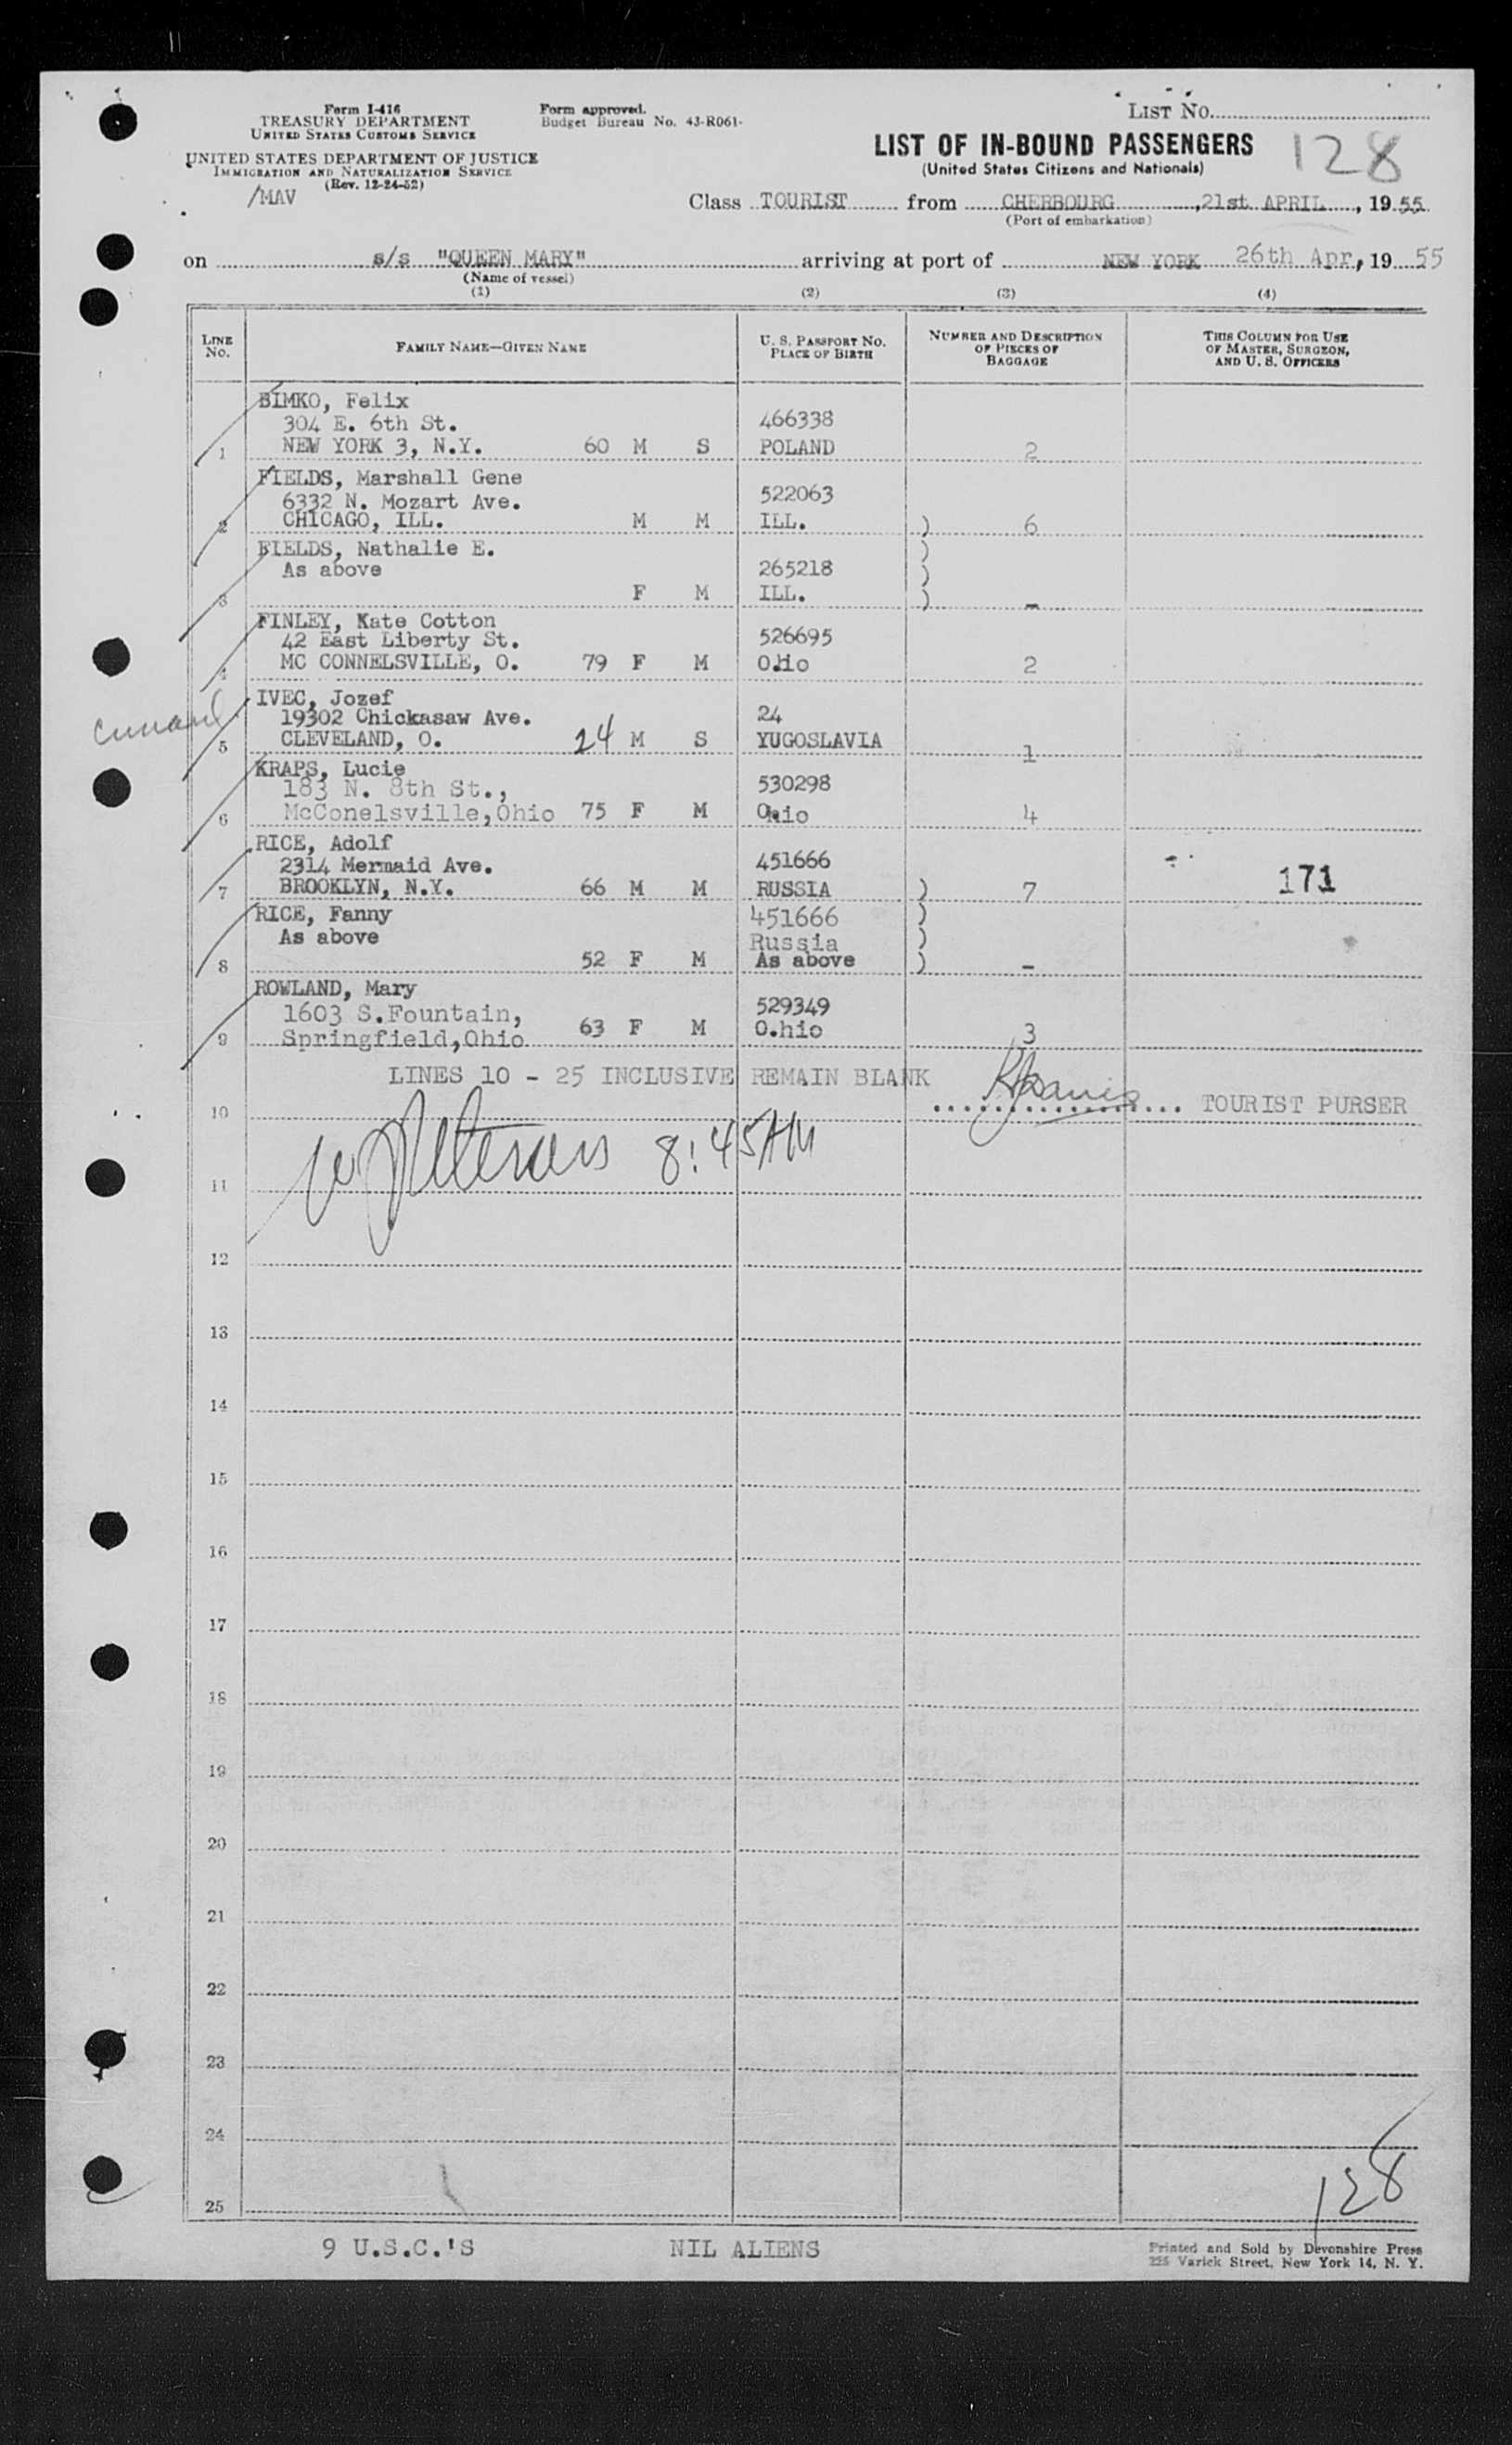 Form I-416
TREASURY DEPARTMENT
UNITED STATES CUSTOMS SERVICE
UNITED STATES DEPARTMENT OF JUSTICE
IMMIGRATION AND NATURALIZATION SERVICE
(Rev. 12-24-52)
/MAV
Form approved.
Budget Bureau No. 43-R061-
LIST NO.
LIST OF IN-BOUND PASSENGERS
(United States Citizens and Nationals)
128
Class TOURIST from CHERBOURG, 21st APRIL, 1955
(Port of embarkation)
on s/s "QUEEN MARY" arriving at port of NEW YORK 26th Apr, 19 55
(Name of vessel)
(1) (2) (3) (4)
LINE NO. FAMILY NAME—GIVEN NAME U. S. PASSPORT NO. PLACE OF BIRTH NUMBER AND DESCRIPTION OF PIECES OF BAGGAGE THIS COLUMN FOR USE OF MASTER, SURGEON, AND U. S. OFFICERS
BIMKO, Felix
304 E. 6th St. 466338
1 NEW YORK 3, N.Y. 60 M S POLAND 2
FIELDS, Marshall Gene
6332 N. Mozart Ave. 522063
2 CHICAGO, ILL. M M ILL. ) 6
FIELDS, Nathalie E. )
As above 265218 )
3 F M ILL. ) -
FINLEY, Kate Cotton
42 East Liberty St. 526695
4 MC CONNELSVILLE, O. 79 F M Ohio 2
IVEC, Jozef
Cunard 19302 Chickasaw Ave. 24
5 CLEVELAND, O. 24 M S YUGOSLAVIA 1
KRAPS, Lucie
183 N. 8th St., 530298
6 McConelsville, Ohio 75 F M Ohio 4
RICE, Adolf
2314 Mermaid Ave. 451666
7 BROOKLYN, N.Y. 66 M M RUSSIA ) 7 171
RICE, Fanny 451666 )
As above Russia )
8 52 F M As above ) -
ROWLAND, Mary
1603 S.Fountain, 529349
9 Springfield, Ohio 63 F M O.hio 3
LINES 10 - 25 INCLUSIVE REMAIN BLANK
10 TOURIST PURSER
8:45AM
11
12
13
14
15
16
17
18
19
20
21
22
23
24
25
128
9 U.S.C.'S NIL ALIENS
Printed and Sold by Devonshire Press
225 Varick Street, New York 14, N. Y.